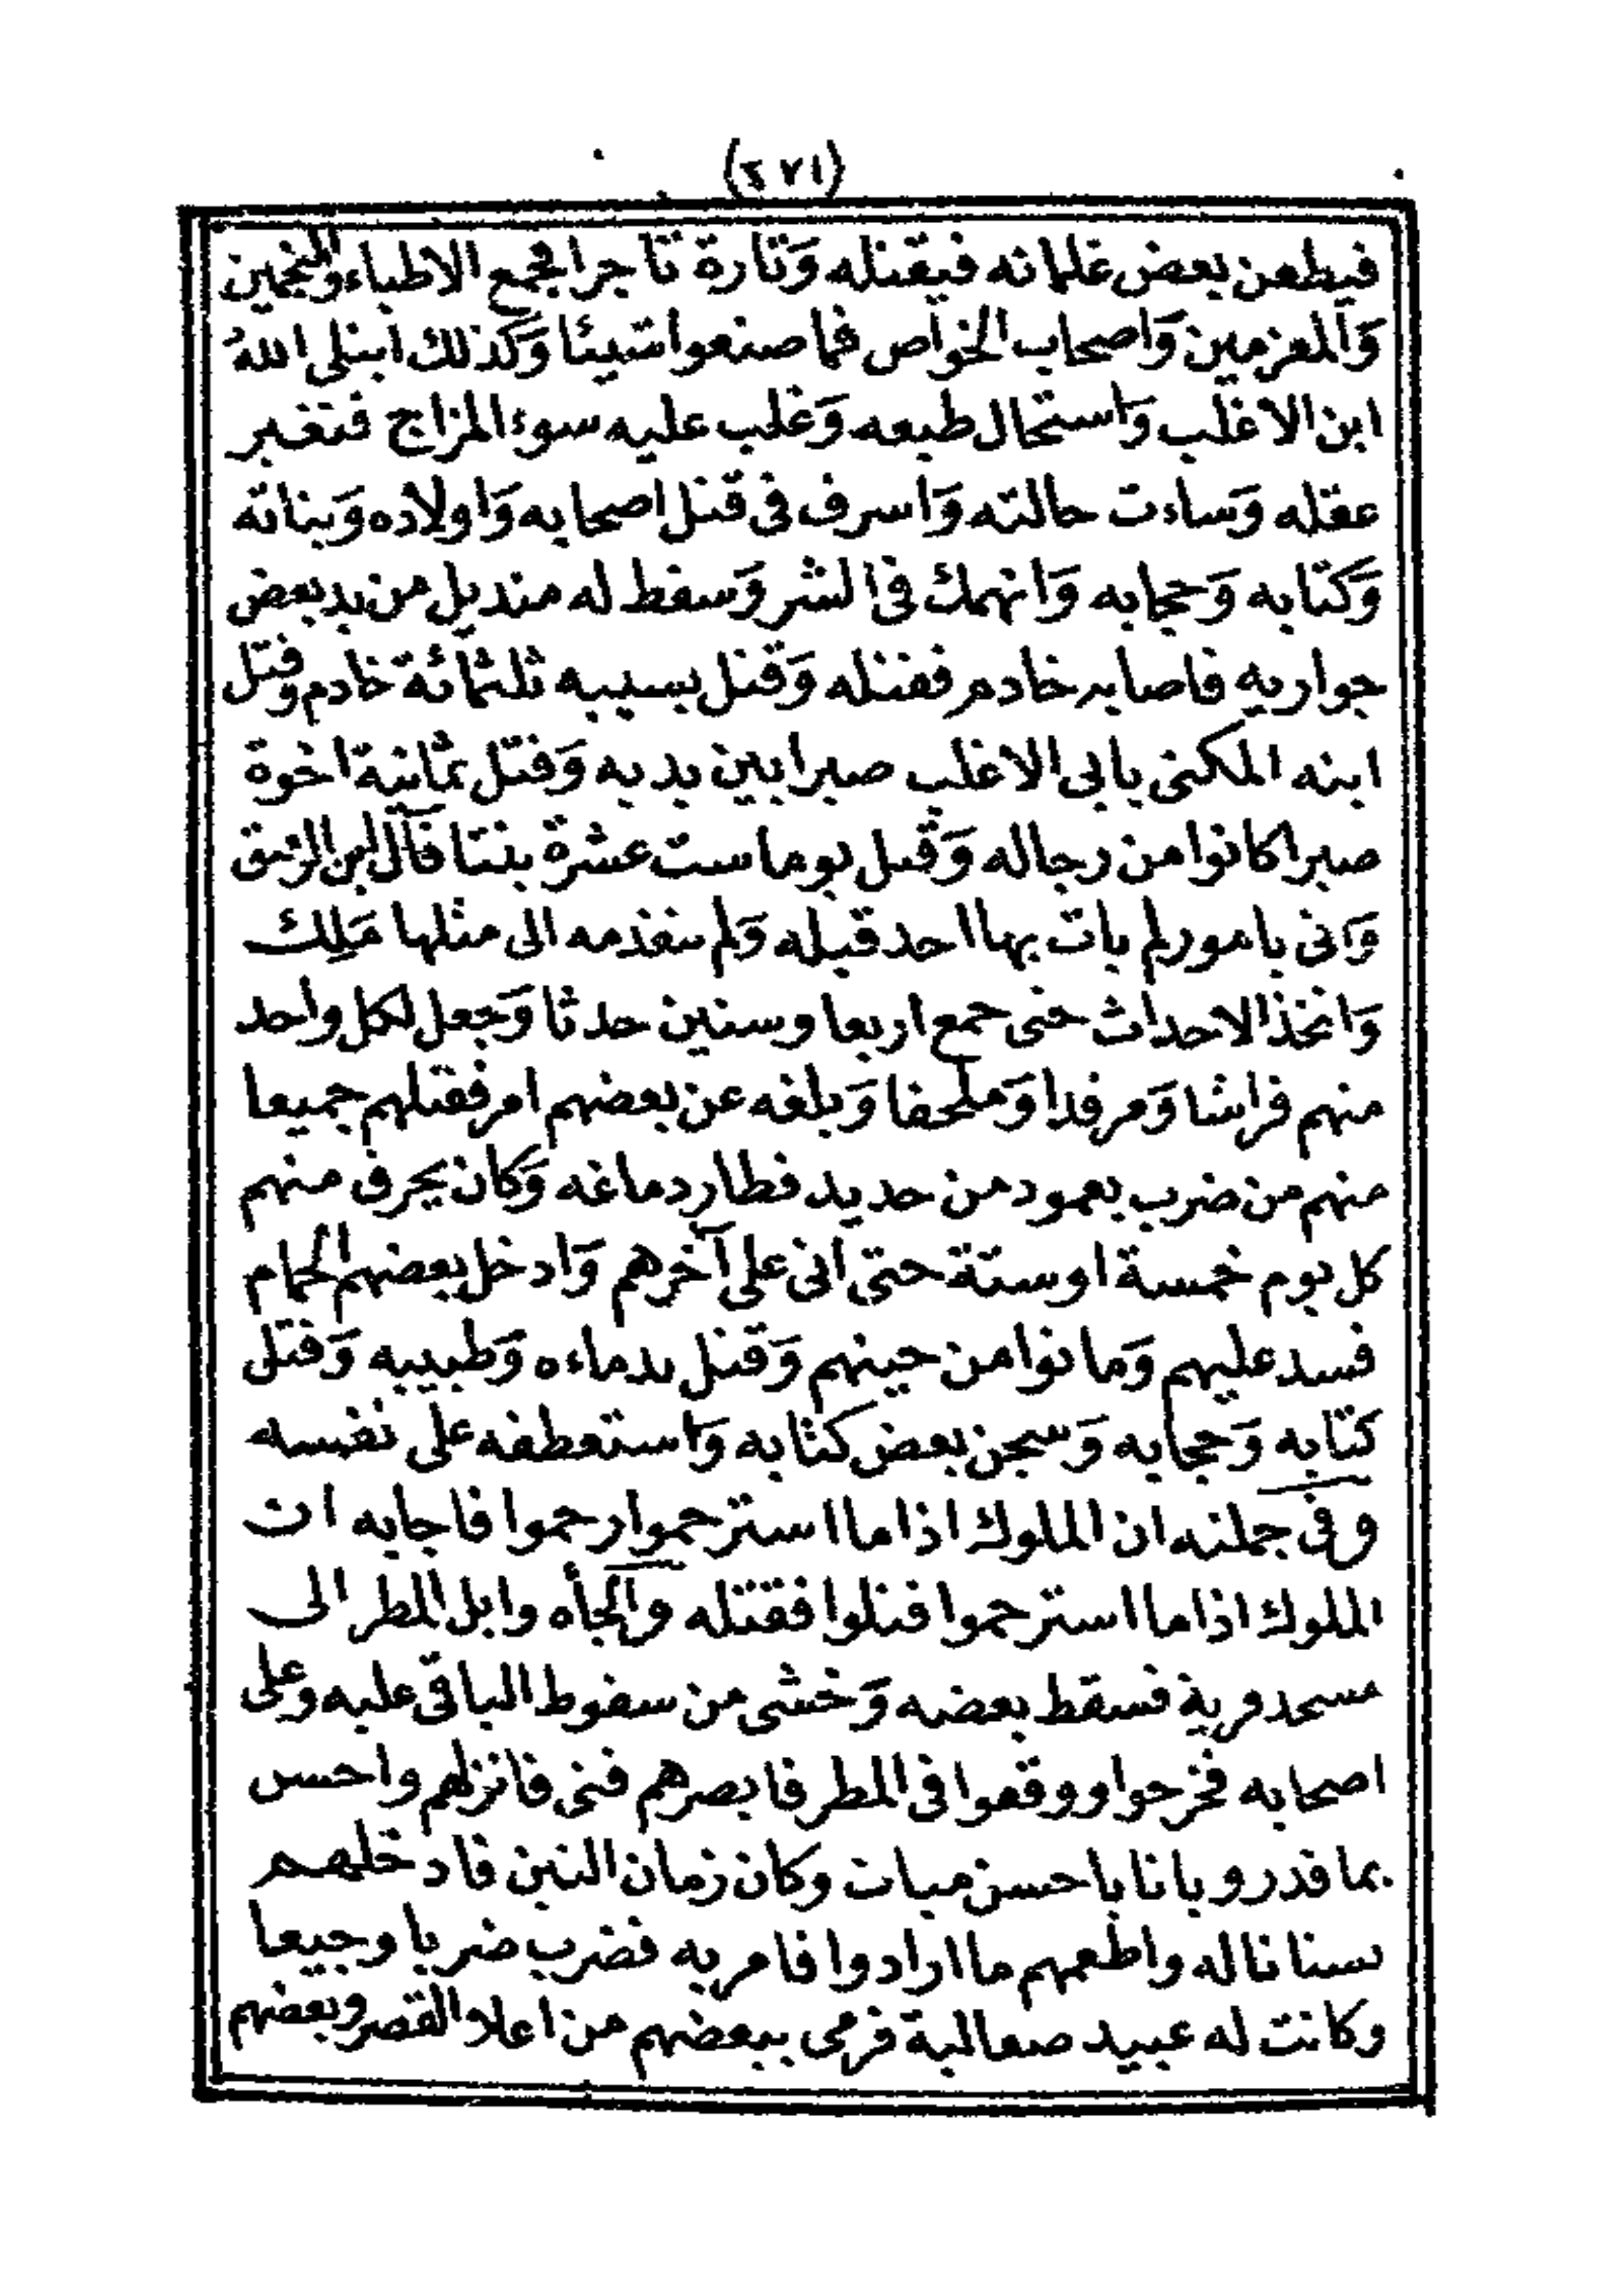 (٢٧١)
فيطعن بعض غلمانه فيقتله وَتارة تاجرا فجمع الاطباء والمنجمين
وَالمعزمين وَاصحاب الخواص فما صنعوا شيئا وَكذلك ابتلى اللهُ
ابن الاغلب وَاستحال طبعه وَغلب عليه سوء المزاج فتغير
عقله وَساءت حالته وَاسرف فى قتل اصحابه وَاولاده وَبناته
وَكتابه وَحجابه وَانهمك فى الشر وَسقط له منديل من يد بعض
جواريه فاصابه خادم فقتله وَقتل بسببه ثلثمائة خادم وقتل
ابنه المكنى بابى الاغلب صبرا بين يديه وَقتل ثمانية اخوة
صبرا كانوا من رجاله وَقتل يوما ست عشرة بنتا قال ابن الرقيق
وَاتى بامور لم يات بها احد قبله وَلم يتقدمه الى مثلها مَلِك
وَاتخذ الاحداث حتى جمع اربعا وستين حدثا وَجعل لكل واحد
منهم فراشا وَمرقدا وَملحفا وَبلغه عن بعضهم امر فقتلهم جميعا
منهم من ضرب بعمود من حديد فطار دماغه وَكان يحرق منهم
كل يوم خمسة او ستة حتى اتى على آخرهم وَادخل بعضهم الحمام
فسد عليهم وَماتوا من حينهم وَقتل ندماءه وَطبيبه وَقتل
كتابه وَحجابه وَسجن بعض كتابه وَاستعطفه على نفسه
وفى جملته ان الملوك اذا ما استرحموا رحموا فاجابه ان
الملوك اذا ما استرحموا قتلوا فقتله والجأه وابل المطر الى
مسجد قرية فسقط بعضه وَخشى من سقوط الباقى عليه وعلى
اصحابه فخرجوا ووقفوا فى المطر فابصرهم فتى فانزلهم واحسن
بما قدر وباتا باحسن مبات وكان زمان التين فادخلهم
بستانا له واطعمهم ما ارادوا فامر به فضرب ضربا وجيعا
وكانت له عبيد صعالبة فرمى ببعضهم من اعلا القصر وبعضهم